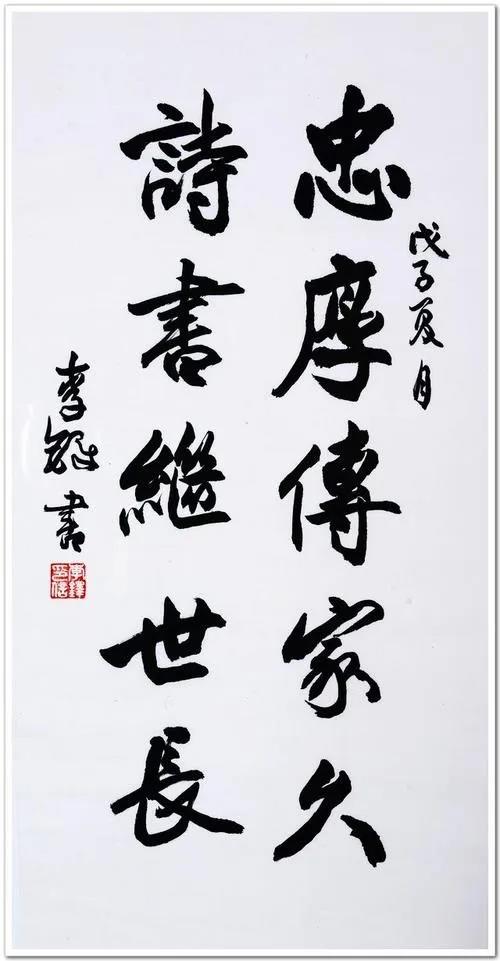 戊子夏月
忠厚傳家久
詩書繼世長
李鐸書
李鐸
印信